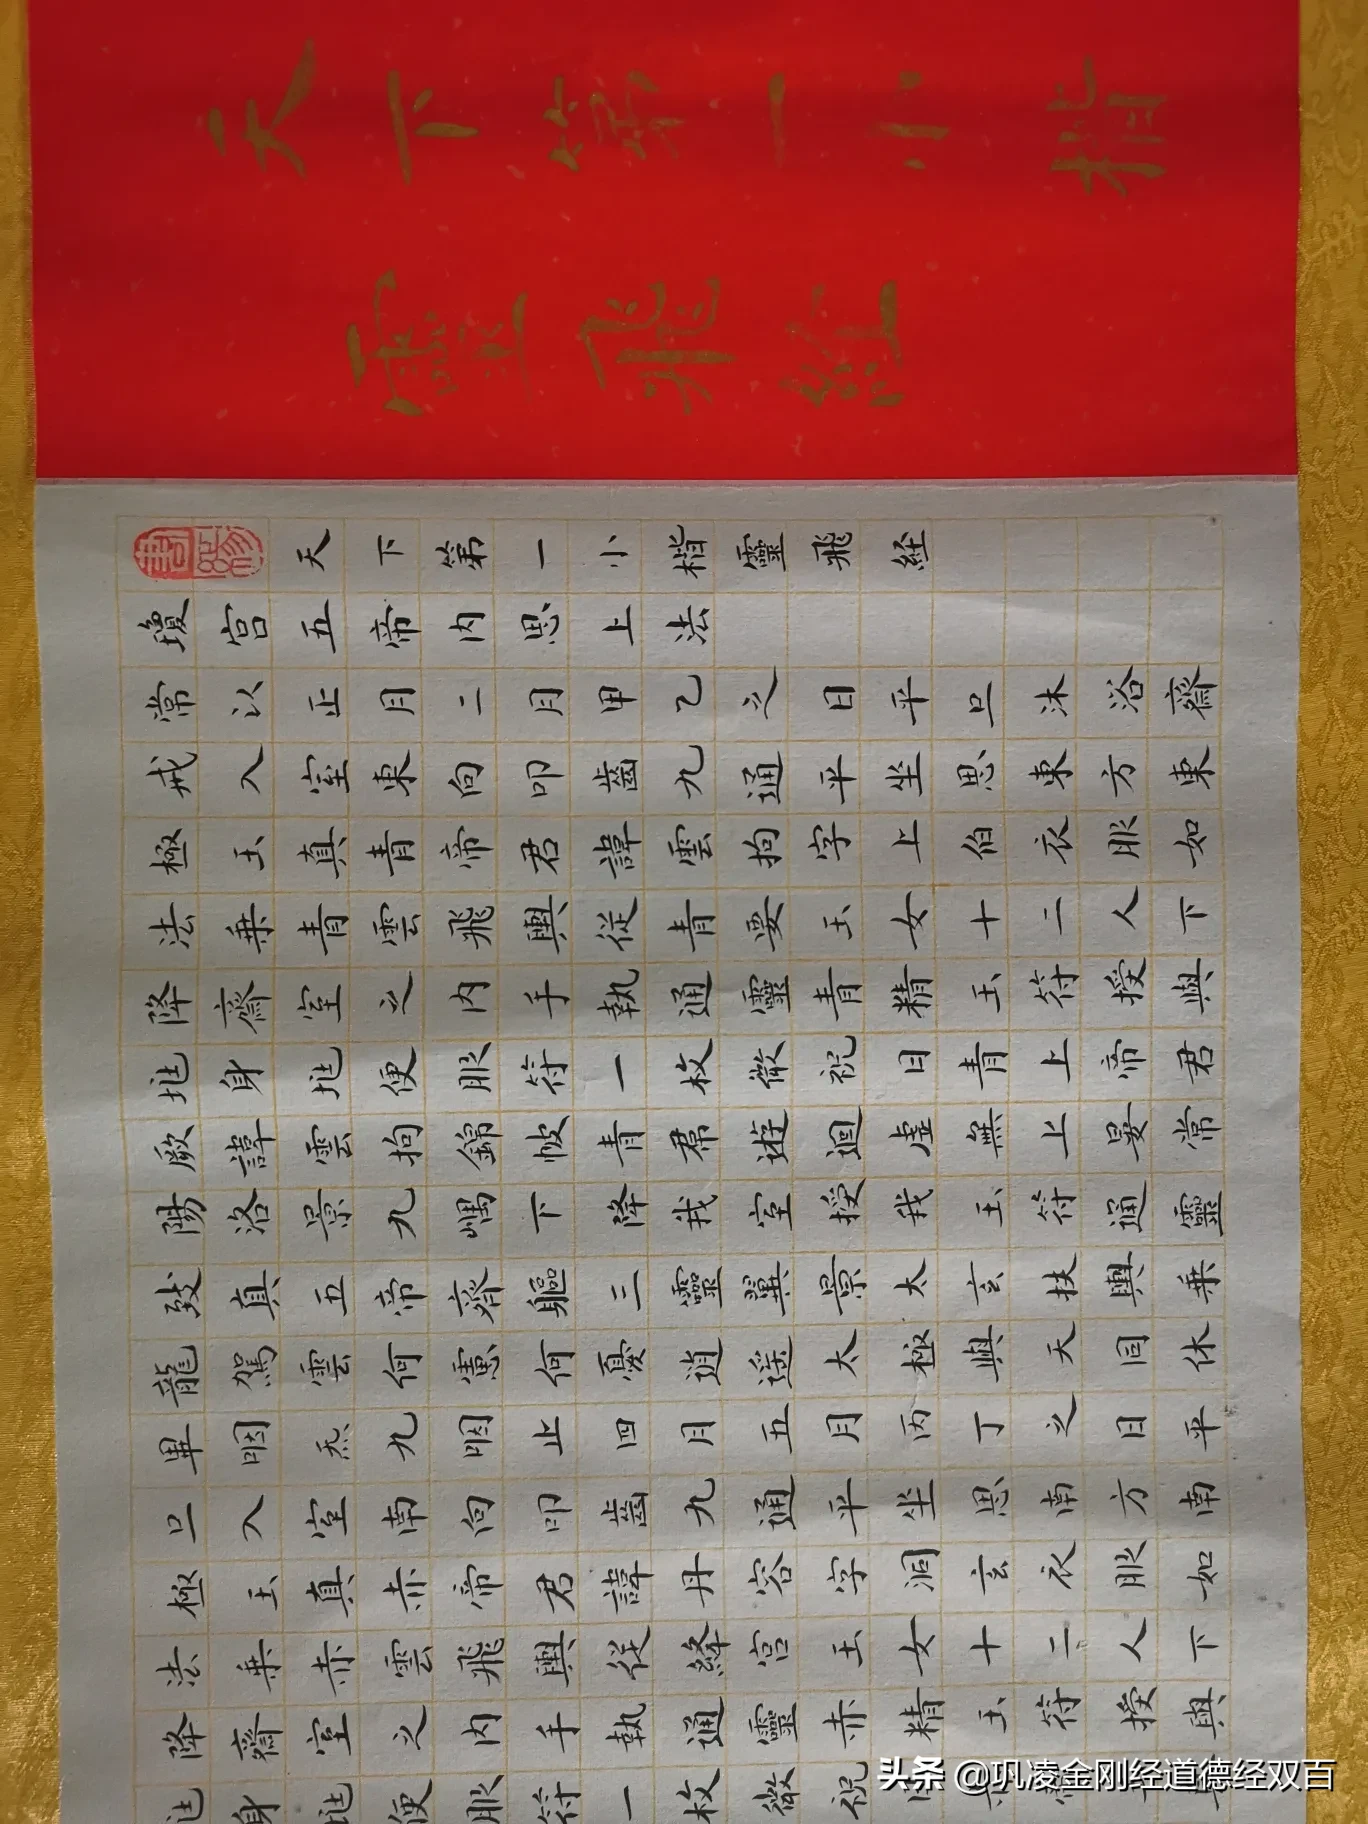 天下第一小楷
靈飛經
天下第一小楷靈飛經
瓊宮五帝内思上法
常以正月二月甲乙之日平旦沐浴齋
戒入室東向叩齒九通平坐思東方東
極玉真青帝君諱雲拘字上伯衣服如
法乗青雲飛輿從青要玉女十二人下
降齋室之内手執通靈青精玉符授與
兆身兆便服符一枚微祝曰青上帝君
厥諱雲拘錦帔青帬遊迴虛無上晏常
陽洛景九嵎下降我室授我玉符通靈
致真五帝齊軀三靈翼景太玄扶輿乗
龍駕雲何慮何憂逍遥太極與天同休
畢咽炁九咽止四月五月丙丁之日平
旦入室南向叩齒九通平坐思南方南
極玉真赤帝君諱丹容字洞玄衣服如
法乗赤雲飛輿從絳宮玉女十二人下
降齋室之内手執通靈赤精玉符授與
兆身兆便服符一枚微祝
头条 @巩凌金刚经道德经双百